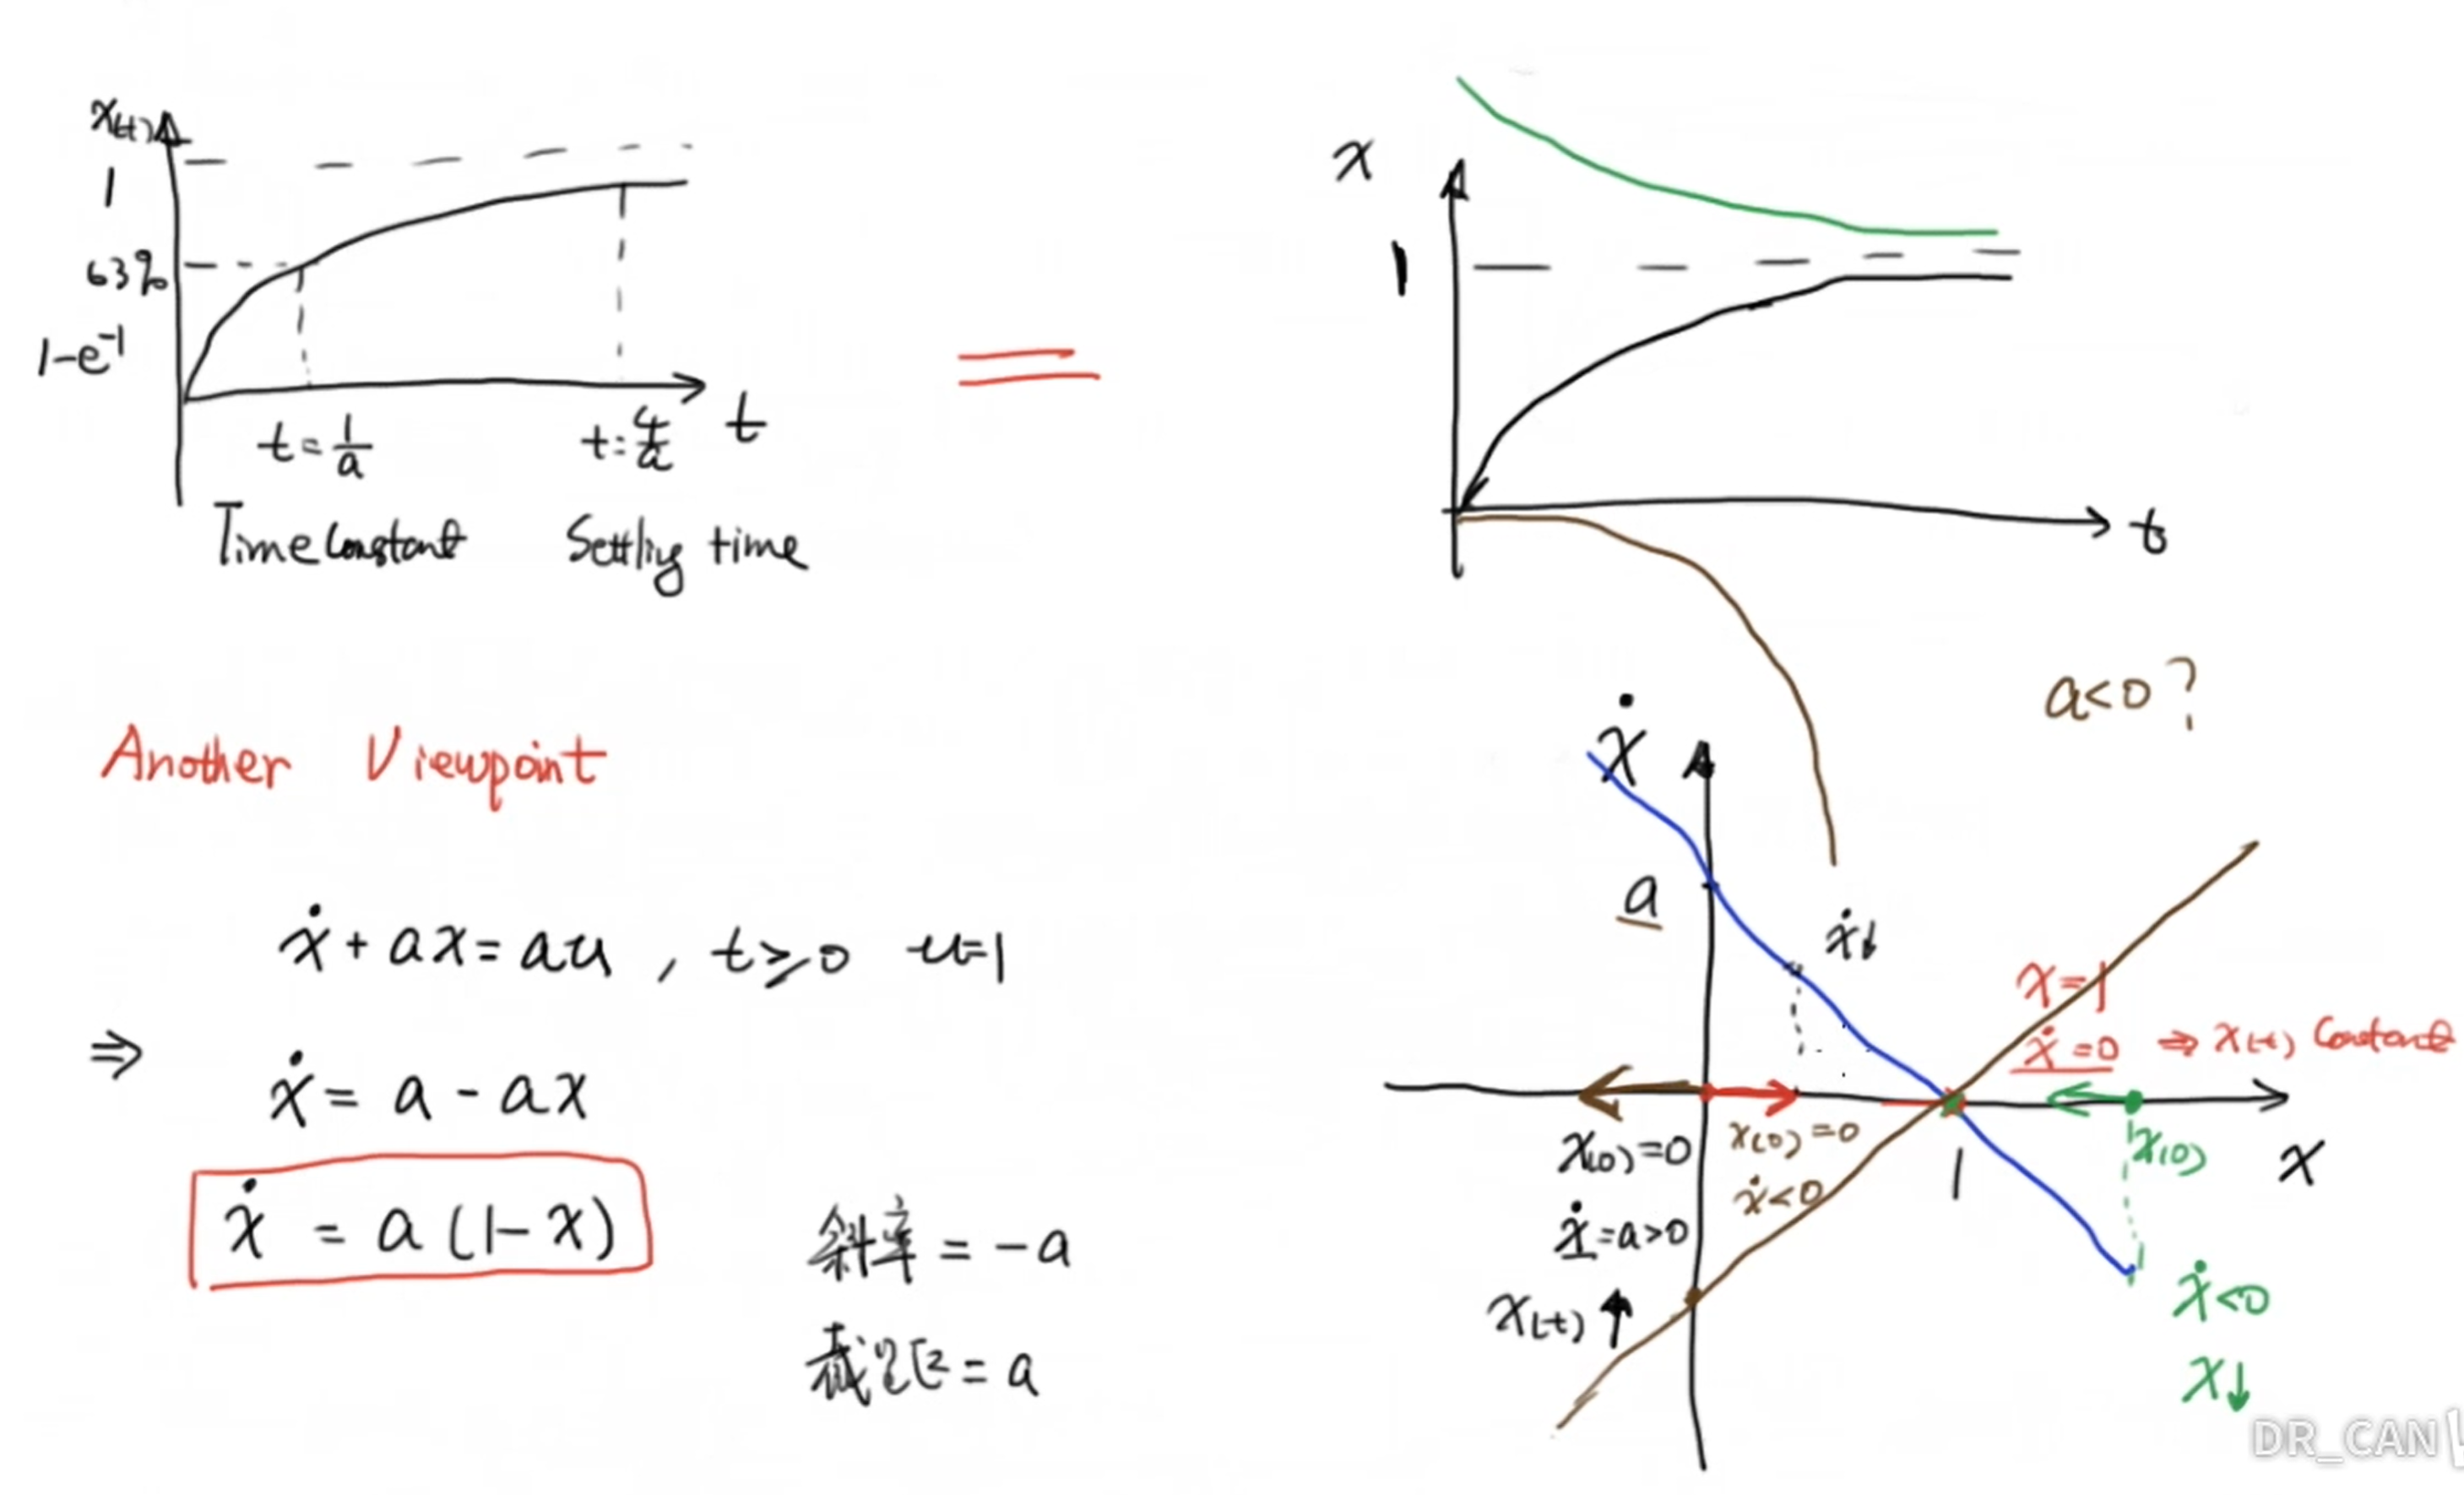 x(t)
1
63%
1-e⁻¹
t=1/a
t=4/a
t
Time Constant
Settlig time
x
1
t
a<0?
Another Viewpoint
ẋ+ax=au , t≥0 u=1
⇒ ẋ= a-ax
ẋ = a(1-x)
斜率=-a
截距=a
ẋ
a
ẋ↓
x=1
ẋ=0 ⇒ x(t) Constant
x(0)=0
ẋ=a>0
x(t)↑
x(0)=0
ẋ<0
1
x(0)
x
ẋ<0
x↓
DR_CAN